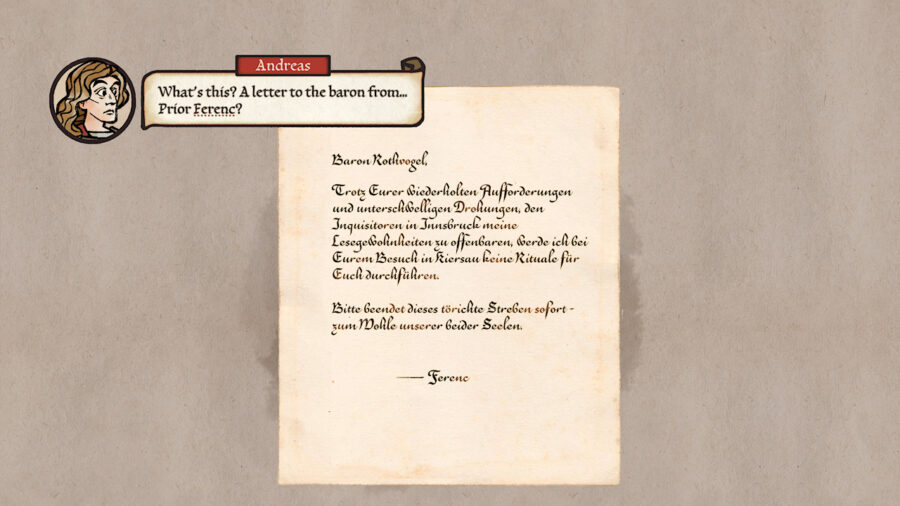 Andreas
What's this? A letter to the baron from...
Prior Ferenc?
Baron Rothvogel,
Trotz Eurer wiederholten Aufforderungen
und unterschwelligen Drohungen, den
Inquisitoren in Innsbruck meine
Lesegewohnheiten zu offenbaren, werde ich bei
Eurem Besuch in Kiersau keine Rituale für
Euch durchführen.
Bitte beendet dieses törichte Streben sofort -
zum Wohle unserer beider Seelen.
— Ferenc